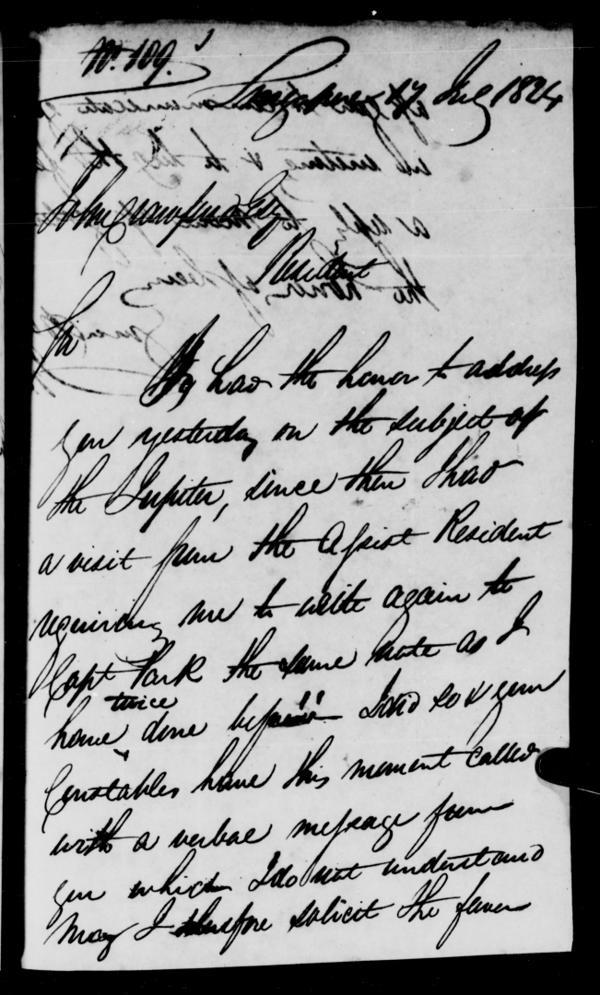 No. 109.
Singapore 17 July 1824
John Crawfurd Esq
Resident
Sir
I had the honor to address
you yesterday on the subject of
the Jupiter, since then I had
a visit from the Assist Resident
requiring me to write again to
Capt Park the same note as I
have twice done before I did so & your
Constables have this moment called
with a verbal message from
you which I do not understand
May I therefore solicit the favor